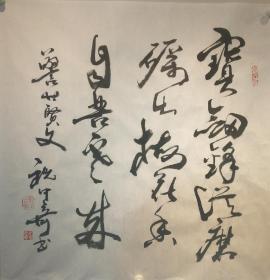 寳劍鋒從磨
礪出梅花香
自苦寒來
警世賢文
祝
書